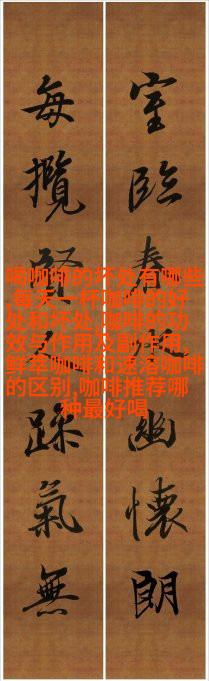 室臨春幽懷朗
每攬賢躁氣無
喝咖啡的坏处有哪些
,每天一杯咖啡的好
处和坏处,咖啡的功
效与作用及副作用,
鲜萃咖啡和速溶咖啡
的区别,咖啡推荐哪
种最好喝